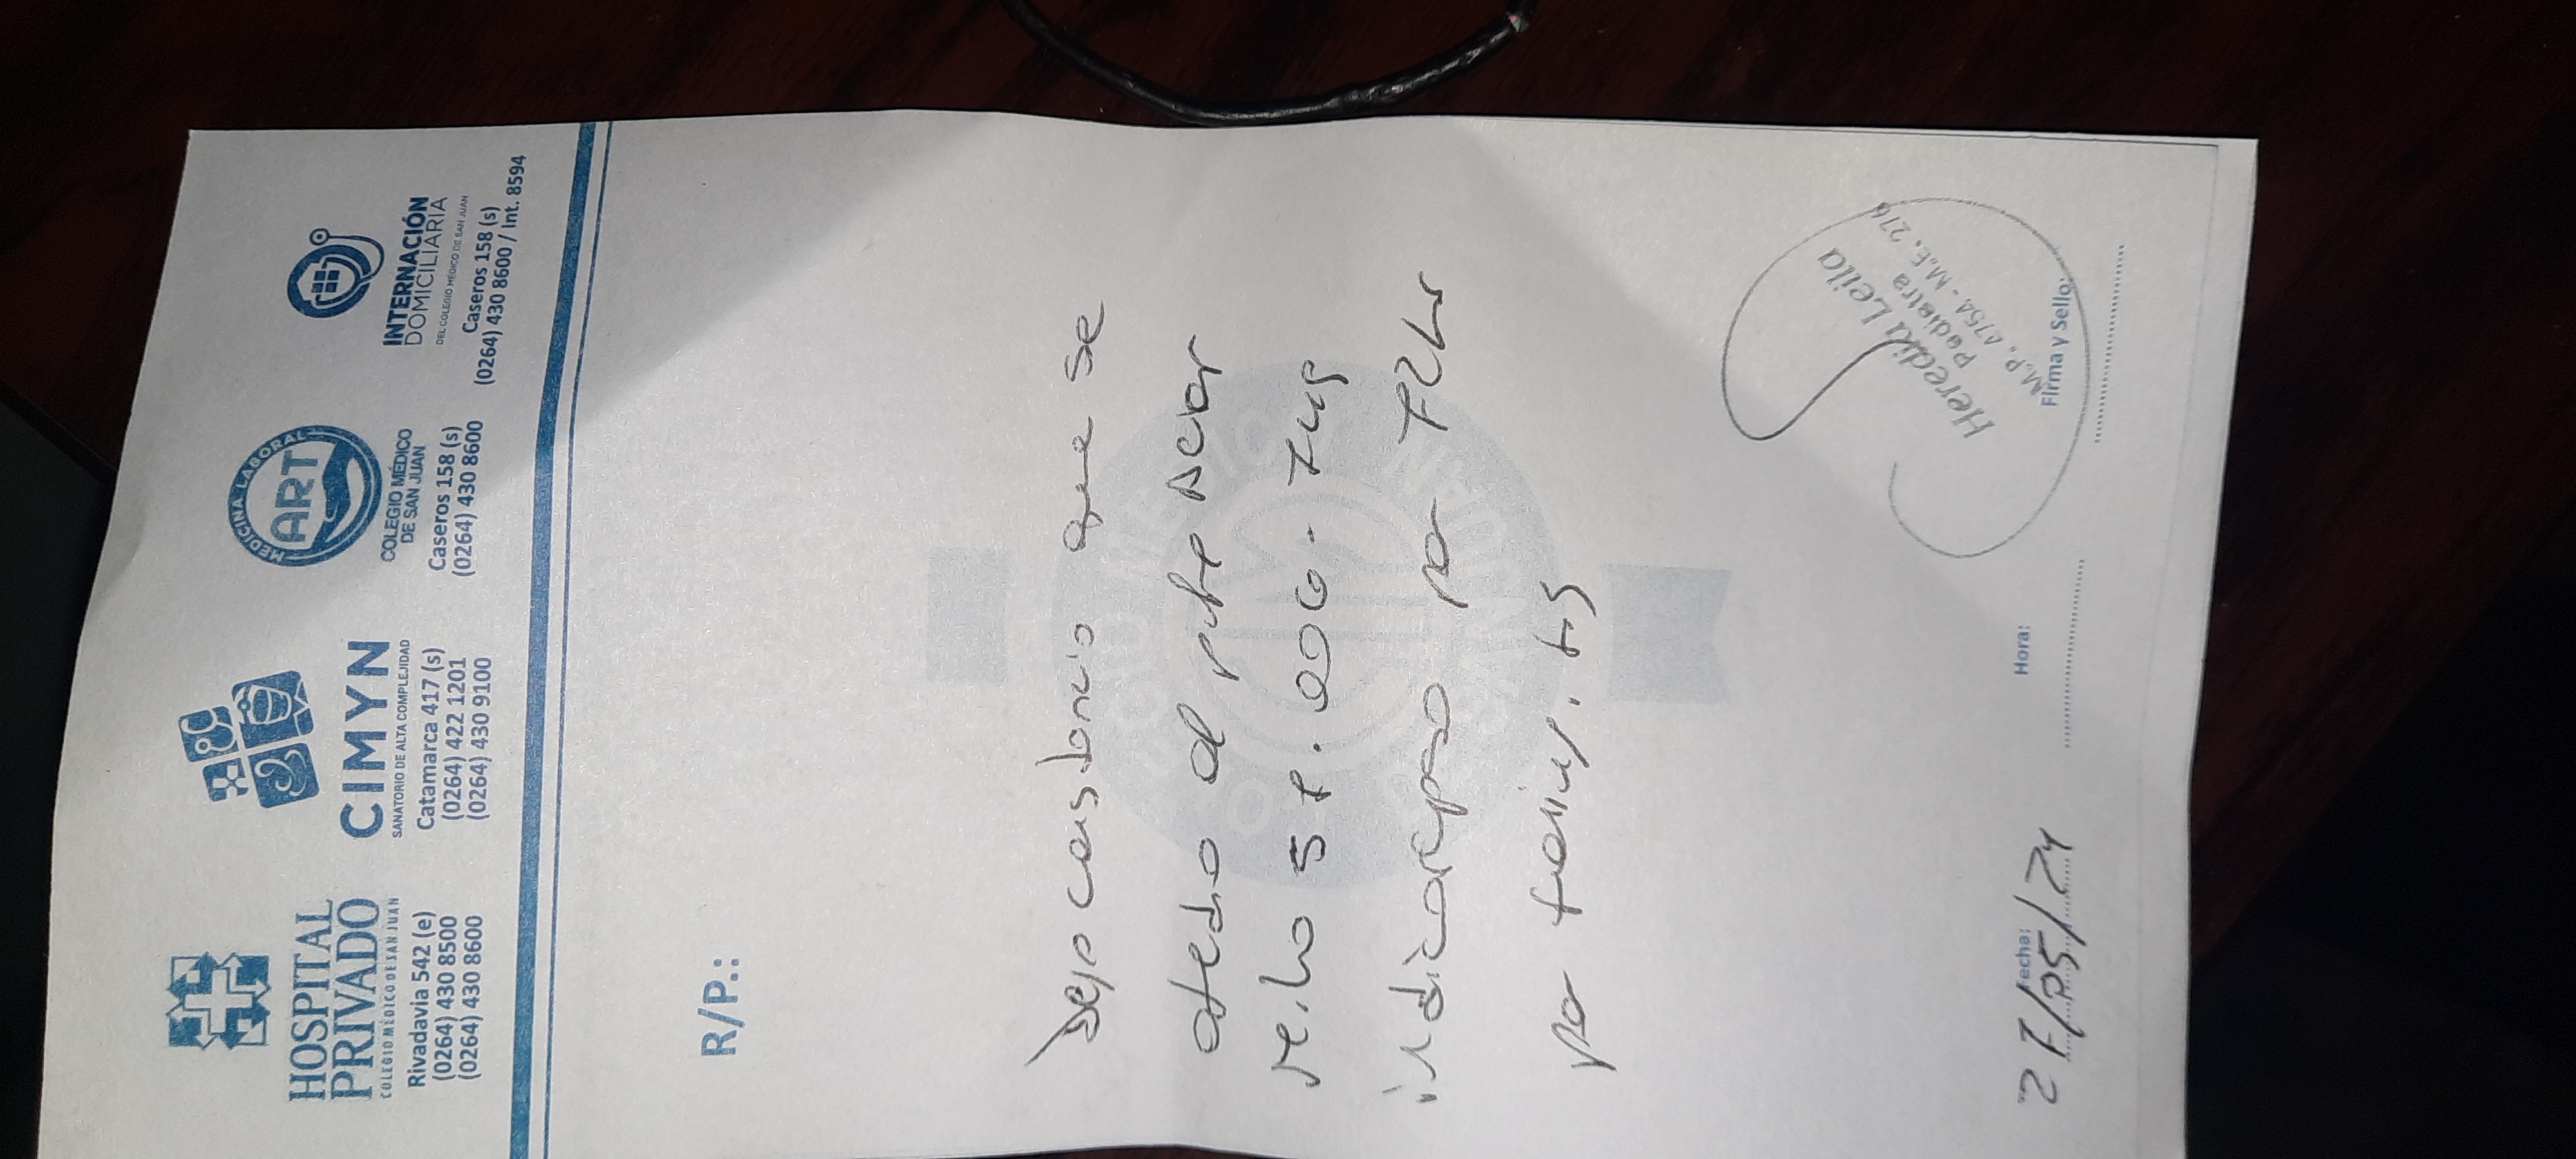 HOSPITAL
PRIVADO
COLEGIO MÉDICO DE SAN JUAN
Rivadavia 542 (e)
(0264) 430 8500
(0264) 430 8600
CIMYN
SANATORIO DE ALTA COMPLEJIDAD
Catamarca 417 (s)
(0264) 422 1201
(0264) 430 9100
MEDICINA LABORAL
ART
COLEGIO MÉDICO
DE SAN JUAN
Caseros 158 (s)
(0264) 430 8600
INTERNACIÓN
DOMICILIARIA
DEL COLEGIO MÉDICO DE SAN JUAN
Caseros 158 (s)
(0264) 430 8600 / Int. 8594
R/P.:
Dejo constancia que se
atedio al pte
indica reposo por 72hs
por
Heredia Leila
Pediatra
M.P. 4754 - M.E.
Fecha:
27/05/24
Hora:
Firma y Sello: